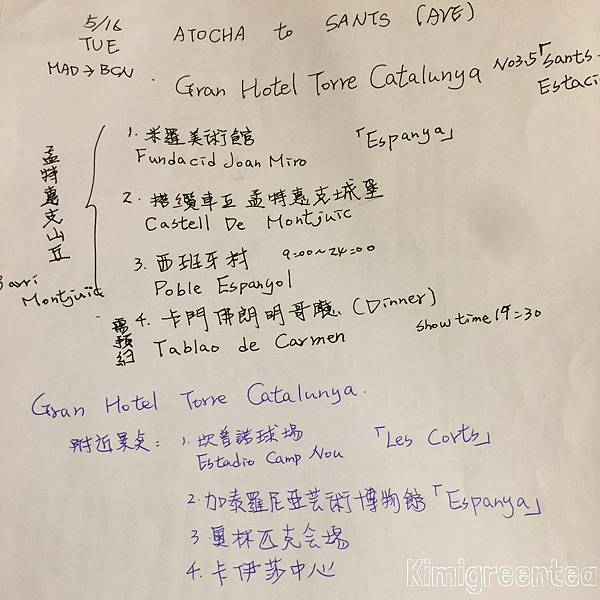 5/16
TUE
MAD→BCN
ATOCHA to SANTS (AVE)
Gran Hotel Torre Catalunya
No3.5「Sants-
Estaci
孟特惠克山丘
Barri
Montjuïc
1. 米羅美術館 「Espanya」
Fundacid Joan Miro
2. 搭纜車至孟特惠克城堡
Castell De Montjuïc
3. 西班牙村 9:00~24:00
Poble Espanyol
需預約
4. 卡門佛朗明哥廳 (Dinner)
Tablao de Carmen show time 19:30
Gran Hotel Torre Catalunya.
附近景点: 1. 坎普諾球場 「Les Corts」
Estadio Camp Nou
2. 加泰羅尼亞芸術博物館「Espanya」
3. 奧林匹克会場
4. 卡伊莎中心
Kimigreentea